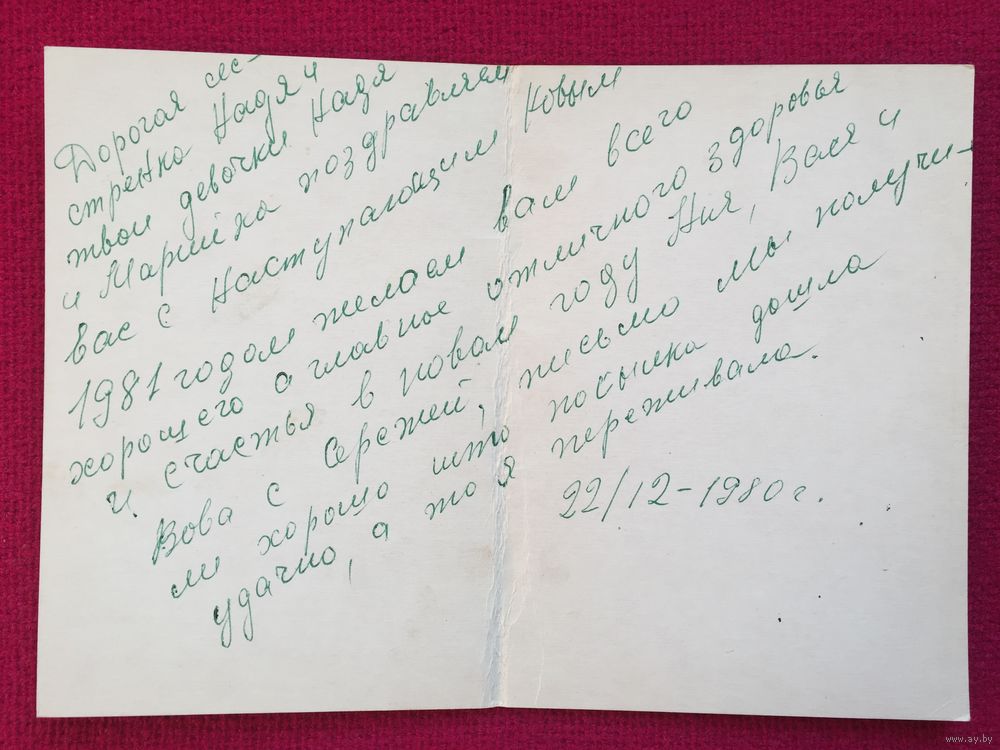 Дорогая сес-
тренка Надя и
твои девочки Надя
и Марийка поздравляем
вас с Наступающим Новым
1981 годом желаем вам всего
хорошего а главное отличного здоровья
и счастья в новом году Ния, Валя и
Вова с Сережей, письмо мы получи-
ли хорошо што посылка дошла
удачно, а то я переживала.
22/12-1980 г.
www.ay.by